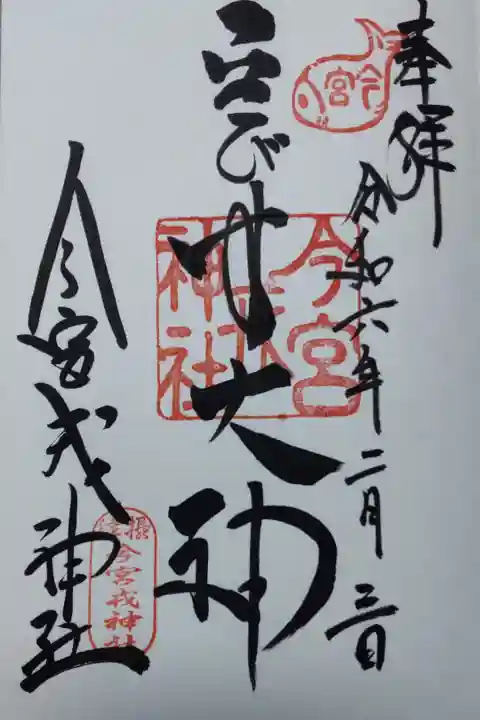 奉拝
令和六年二月三日
今宮
び 大神
今宮戎神社
今宮戎神社
摂津
今宮戎神社